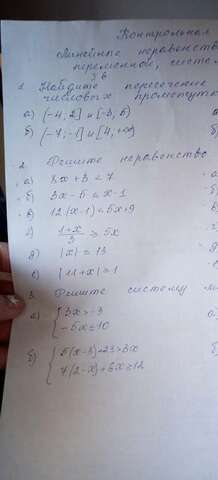 Контрольная
Линейные неравенств
переменной, систем
3 в
1. Найдите пересечение
числовых промежутк
а) (-4; 2] и [-3; 5)
б) (-7; -1] и [4; +∞)
2. Решите неравенство
а) 8x + 3 < 7
б) 3x - 5 < x - 1
в) 12(x-1) < 5x+9
г) 1+x / 3 ≥ 5x
д) |x| = 13
е) |11+x| = 1
3. Решите систему
а) { 3x > -3
-5x ≤ 10
б) { 5(x-3)+23 > 3x
7(2-x)+6x ≥ 12